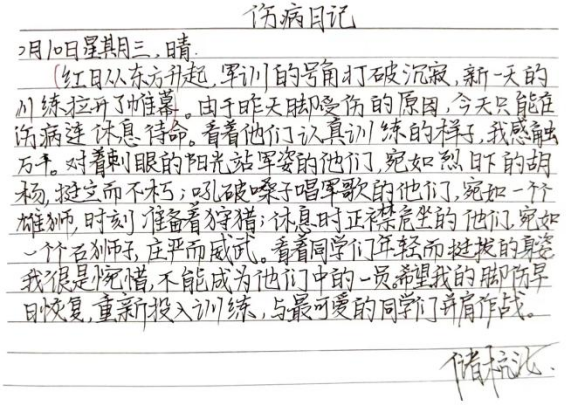 伤病日记
2月10日星期三,晴.
红日从东方升起,军训的号角打破沉寂,新一天的
训练拉开了帷幕。由于昨天脚受伤的原因,今天只能在
伤病连休息待命。看着他们认真训练的样子,我感触
万千。对着刺眼的阳光站军姿的他们,宛如烈日下的胡
杨,挺立而不朽;吼破嗓子唱军歌的他们,宛如一个
雄狮,时刻准备着狩猎;休息时正襟危坐的他们,宛如
一个石狮子,庄严而威武。看着同学们年轻而挺拔的身姿
我很是惋惜,不能成为他们中的一员。希望我的脚伤早
日恢复,重新投入训练,与最可爱的同学们并肩作战。
储杭